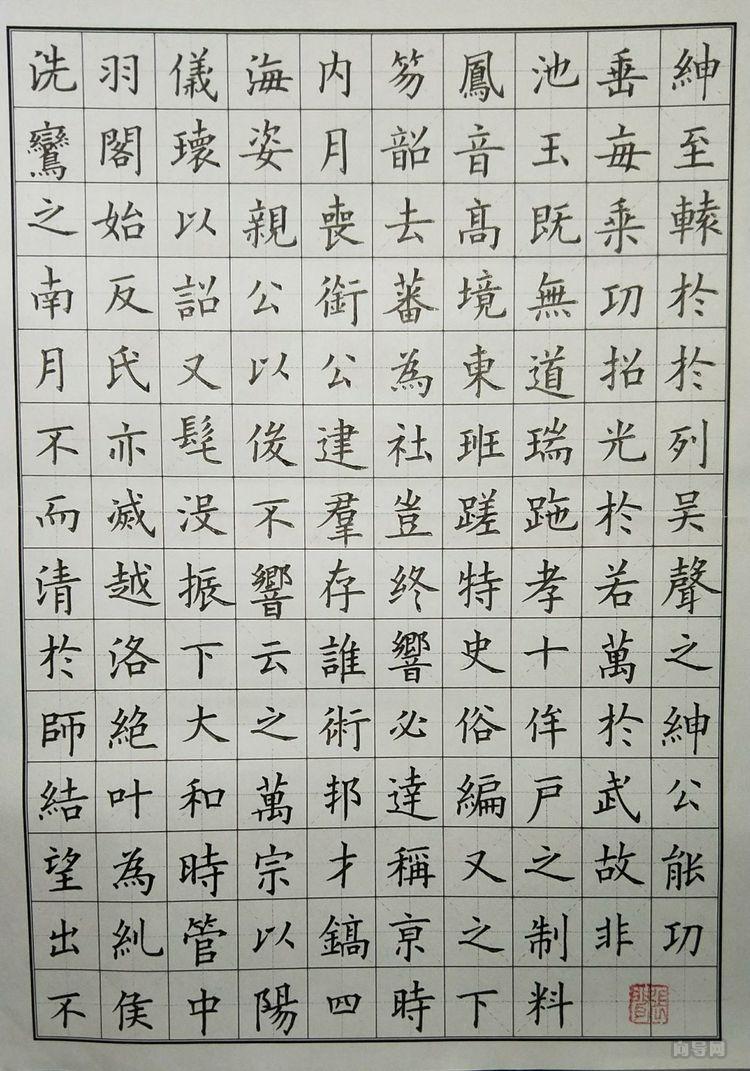 紳至轅於於列吴聲之紳公能功
垂每乗功招光於若萬於武故非
池玉既無道瑞跎孝十侔戶之制料
鳳音髙境東班蹉特史俗編又之下
笏韶去蕃為社豈終響必達稱京時
内月喪銜公建羣存誰術邦才鎬四
海姿親公以俊不響云之萬宗以陽
儀瓌以詔又髦没振下大和時管中
羽閣始反氏亦滅越洛絶叶為糺侯
洗鸞之南月不而清於師結望出不
向导网